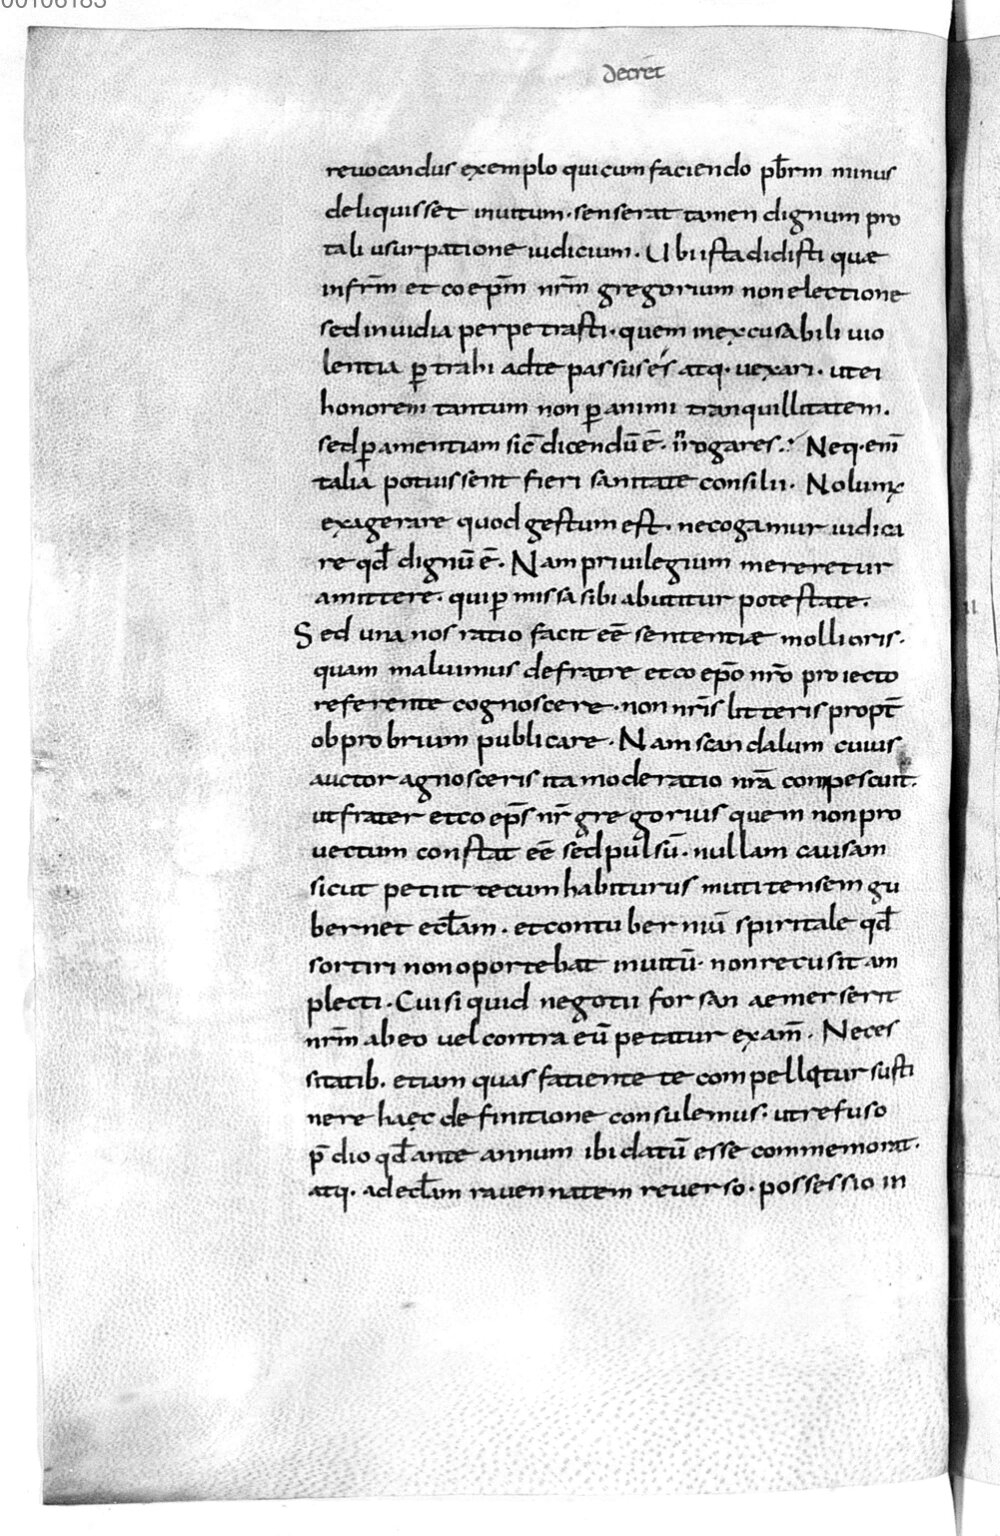 00106183
decret̄
reuocandus exemplo qui cum faciendo pb̄rm minus
deliquisset inuitum. senserat tamen dignum pro
tali usurpatione iudicium. Ubi ista didicisti quae
in fr̄m et coep̄m nr̄m gregorium non electione
sed inuidia perpetrasti. quem inexcusabili uio
lentia ꝑtrahi ad te passus és atq. uexari. ut ei
honorem tantum non ꝑ animi tranquillitatem.
sed ꝑ amentiam sic̄ dicendū ē. irrogares. Neq. enī
talia potuissent fieri sanitate consilii. Nolumꝰ
exagerare quod gestum est. ne cogamur iudica
re qd̄ dignū ē. Nam priuilegium mereretur
amittere. qui ꝑmissa sibi abutitur potestate.
Sed una nos ratio facit eē sententiae mollioris.
quam maluimus de fratre et coep̄o nr̄o proiecto
referente cognoscere. non nr̄is litteris propt̄
obprobrium publicare. Nam scandalum cuius
auctor agnosceris ita moderatio nr̄a compescuit.
ut frater et coep̄s nr̄ gregorius quem non pro
uectum constat eē sed pulsū. nullam causam
sicut petiit tecum habiturus mutitensem gu
bernet ecl̄am. et contuberniū spiritale qd̄
sortiri non oportebat inuitū. non recusit am
plecti. Cui si quid negotii forsan aemerserit
nr̄m ab eo uel contra eū petatur exam̄. Neces
sitatib. etiam quas fatiente te compellitur susti
nere haec definitione consulemus. ut refuso
p̄dio qd̄ ante annum ibi datū esse commemorat.
atq. ad ecl̄am rauennatem reuerso. possessio in